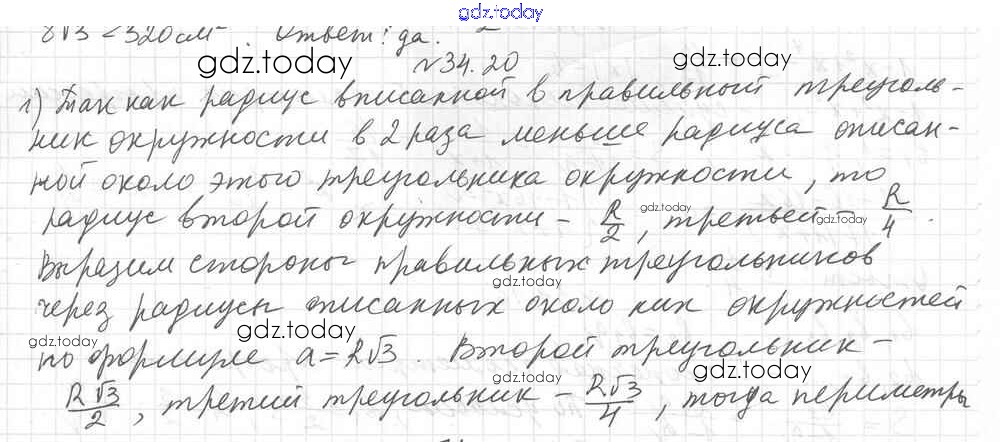 gdz.today
8√3 < 320 см². Ответ: да.
№34.20
1) Так как радиус вписанной в правильный треуголь-
ник окружности в 2 раза меньше радиуса описан-
ной около этого треугольника окружности, то
радиус второй окружности - R/2, третьей - R/4.
Выразим стороны правильных треугольников
через радиусы описанных около них окружностей
по формуле a = R√3. Второй треугольник -
R√3/2, третий треугольник - R√3/4, тогда периметры